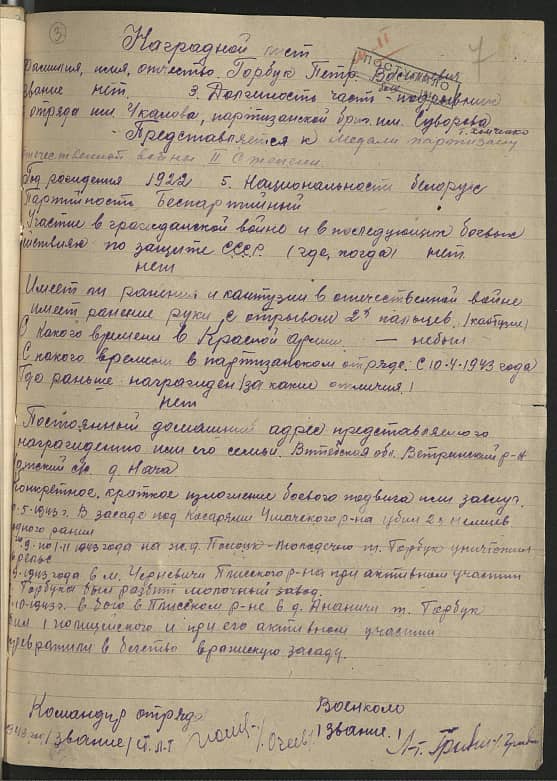 3
II
7
Наградной лист
Фамилия, имя, отчество. Горбук Петр Васильевич
звание нет. 3. Должность часть - подрывник
отряда им. Чкалова, партизанской бриг. им. Суворова
Представляется к медали партизану
отечественной войны II Степени.
Год рождения 1922 5. Национальность белорус
Партийность Беспартийный
Участие в гражданской войне и в последующих боевых
действиях по защите СССР (где, когда) нет.
нет
Имеет ли ранения и контузии в отечественной войне
имеет ранение руки с отрывом 2х пальцев.
С какого времени в Красной армии — небыл
С какого времени в партизанском отряде: С 10-4-1943 года
Где раньше награжден за какие отличия!
нет
Постоянный домашний адрес представляемого
награждению или его семьи. Витебская обл. Ветринский р-н
д. Нача
конкретное, краткое изложение боевого подвига или заслуг.
5-1943 г. В засаде под Косарями Ушачского р-на убил 2х немцев
одного ранил
9. по 1-11 1943 года на ж.д. Полоцк - Молодечно т. Горбук уничтожил
рельс
9-1943 года в м. Черневичи Плисского р-на при активном участии
Горбука был разбит молочный завод.
10-1943 г. в бою в Плисском р-не в д. Ананичи т. Горбук
убил 1 полицейского и при его активном участии
превратили в бегство вражескую засаду.
Командир отряда Военком
/звание/ ст. л-т /звание!
Л-т.